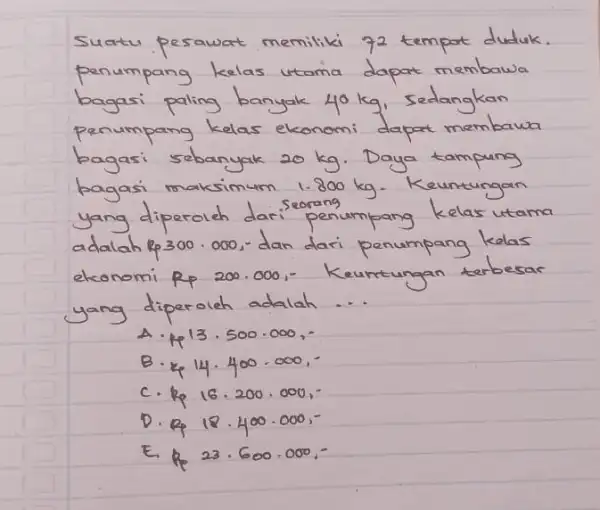 Suatu pesawat memiliki 72 tempat duduk.
Penumpang kelas utama dapat membawa
bagasi paling banyak 40 kg, sedangkan
penumpang kelas ekonomi dapat membawa
bagasi sebanyak 20 kg. Daya tampung
bagasi maksimum 1.800 kg. Keuntungan
yang diperoleh dari seorang penumpang kelas utama
adalah Rp300.000,- dan dari penumpang kelas
ekonomi Rp 200.000,- Keuntungan terbesar
yang diperoleh adalah ...
A. Rp 13.500.000,-
B. Rp 14.400.000,-
C. Rp 16.200.000,-
D. Rp 18.400.000,-
E. Rp 23.600.000,-